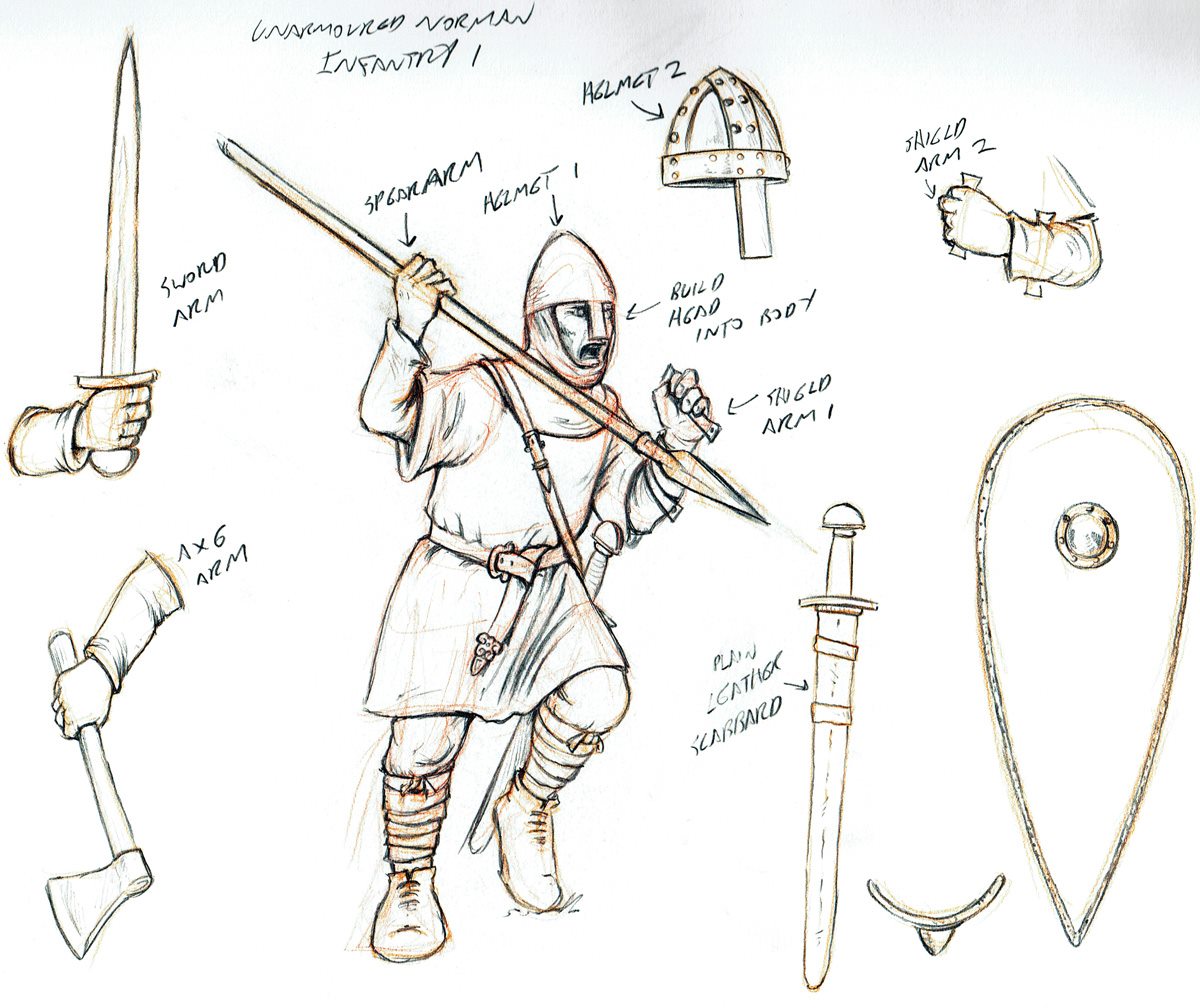 UNARMOURED NORMAN
INFANTRY 1
HELMET 2
SHIELD
ARM 2
SPEARARM
HELMET 1
SWORD
ARM
BUILD
HEAD
INTO BODY
SHIELD
ARM 1
AXE
ARM
PLAIN
LEATHER
SCABBARD